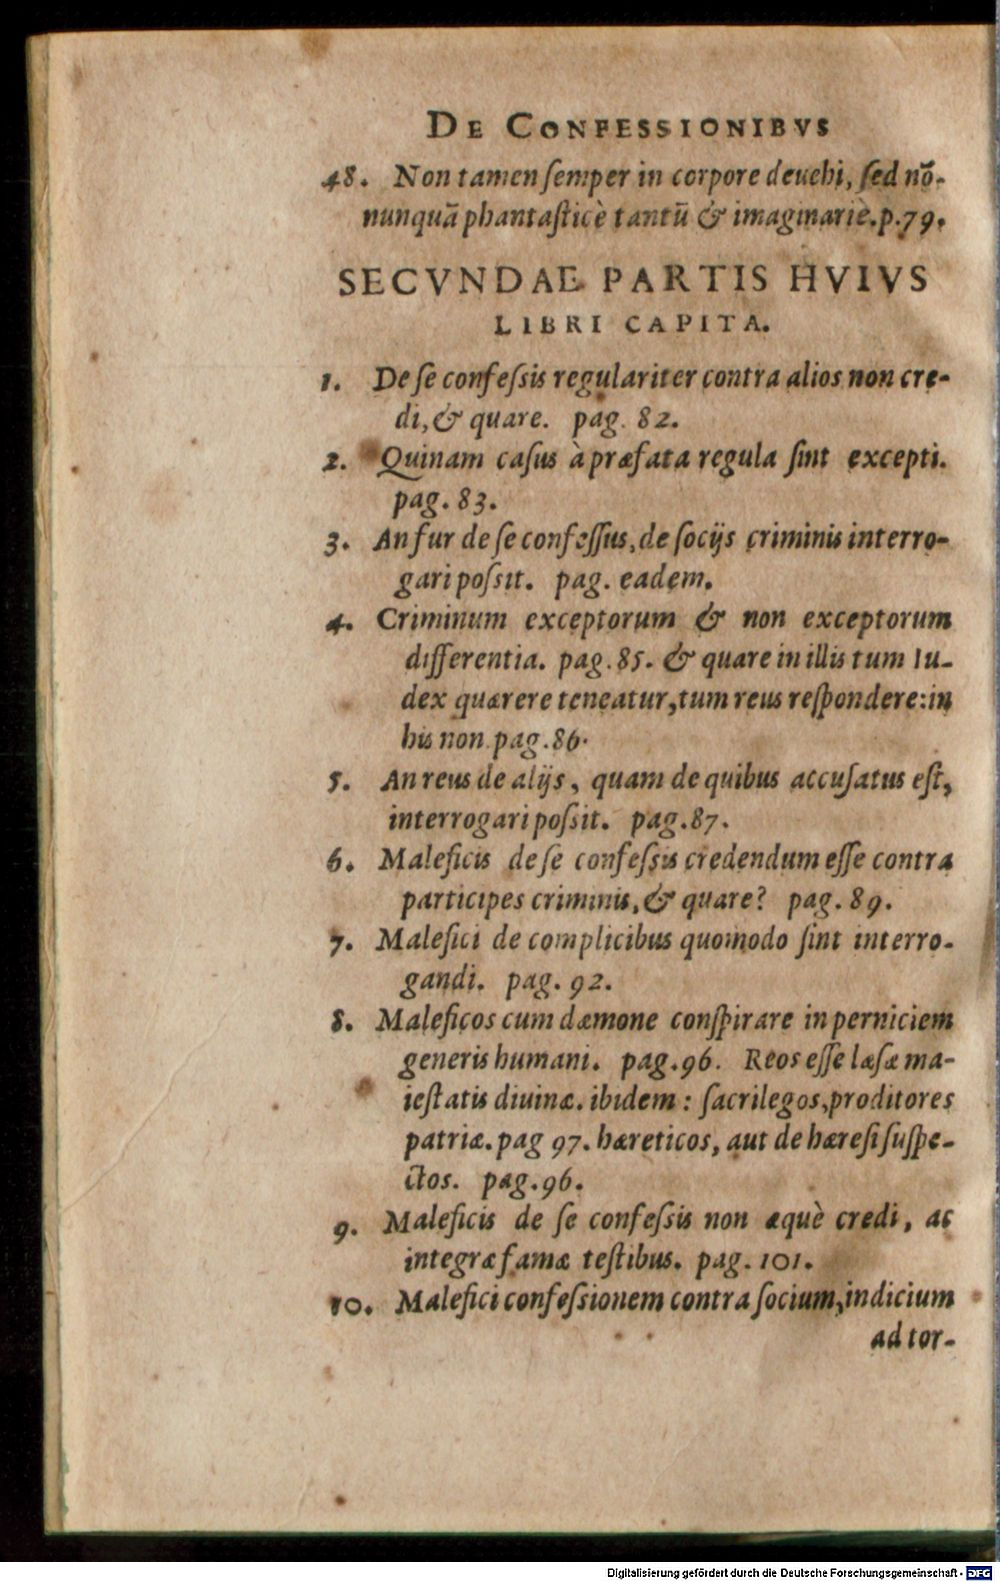 DE CONFESSIONIBVS
48. Non tamen ſemper in corpore deuehi, ſed nō-
nunquā phantaſticè tantū & imaginariè. p. 79.
SECVNDAE PARTIS HVIVS
LIBRI CAPITA.
1. De ſe confeſsis regulariter contra alios non cre-
di, & quare. pag. 82.
2. Quinam caſus à præfata regula ſint excepti.
pag. 83.
3. An fur de ſe confeſſus, de ſocijs criminis interro-
gari poſsit. pag. eadem.
4. Criminum exceptorum & non exceptorum
differentia. pag. 85. & quare in illis tum Iu-
dex quærere teneatur, tum reus reſpondere: in
his non pag. 86.
5. An reus de alijs, quam de quibus accuſatus eſt,
interrogari poſsit. pag. 87.
6. Maleficis de ſe confeſsis credendum eſſe contra
participes criminis, & quare? pag. 89.
7. Malefici de complicibus quomodo ſint interro-
gandi. pag. 92.
8. Maleficos cum dæmone conſpirare in perniciem
generis humani. pag. 96. Reos eſſe læſæ ma-
ieſtatis diuinæ. ibidem: ſacrilegos, proditores
patriæ. pag 97. hæreticos, aut de hæreſi ſuſpe-
ctos. pag. 96.
9. Maleficis de ſe confeſsis non æquè credi, ac
integræ famæ teſtibus. pag. 101.
10. Malefici confeſsionem contra ſocium, indicium
ad tor-
Digitalisierung gefördert durch die Deutsche Forschungsgemeinschaft - DFG